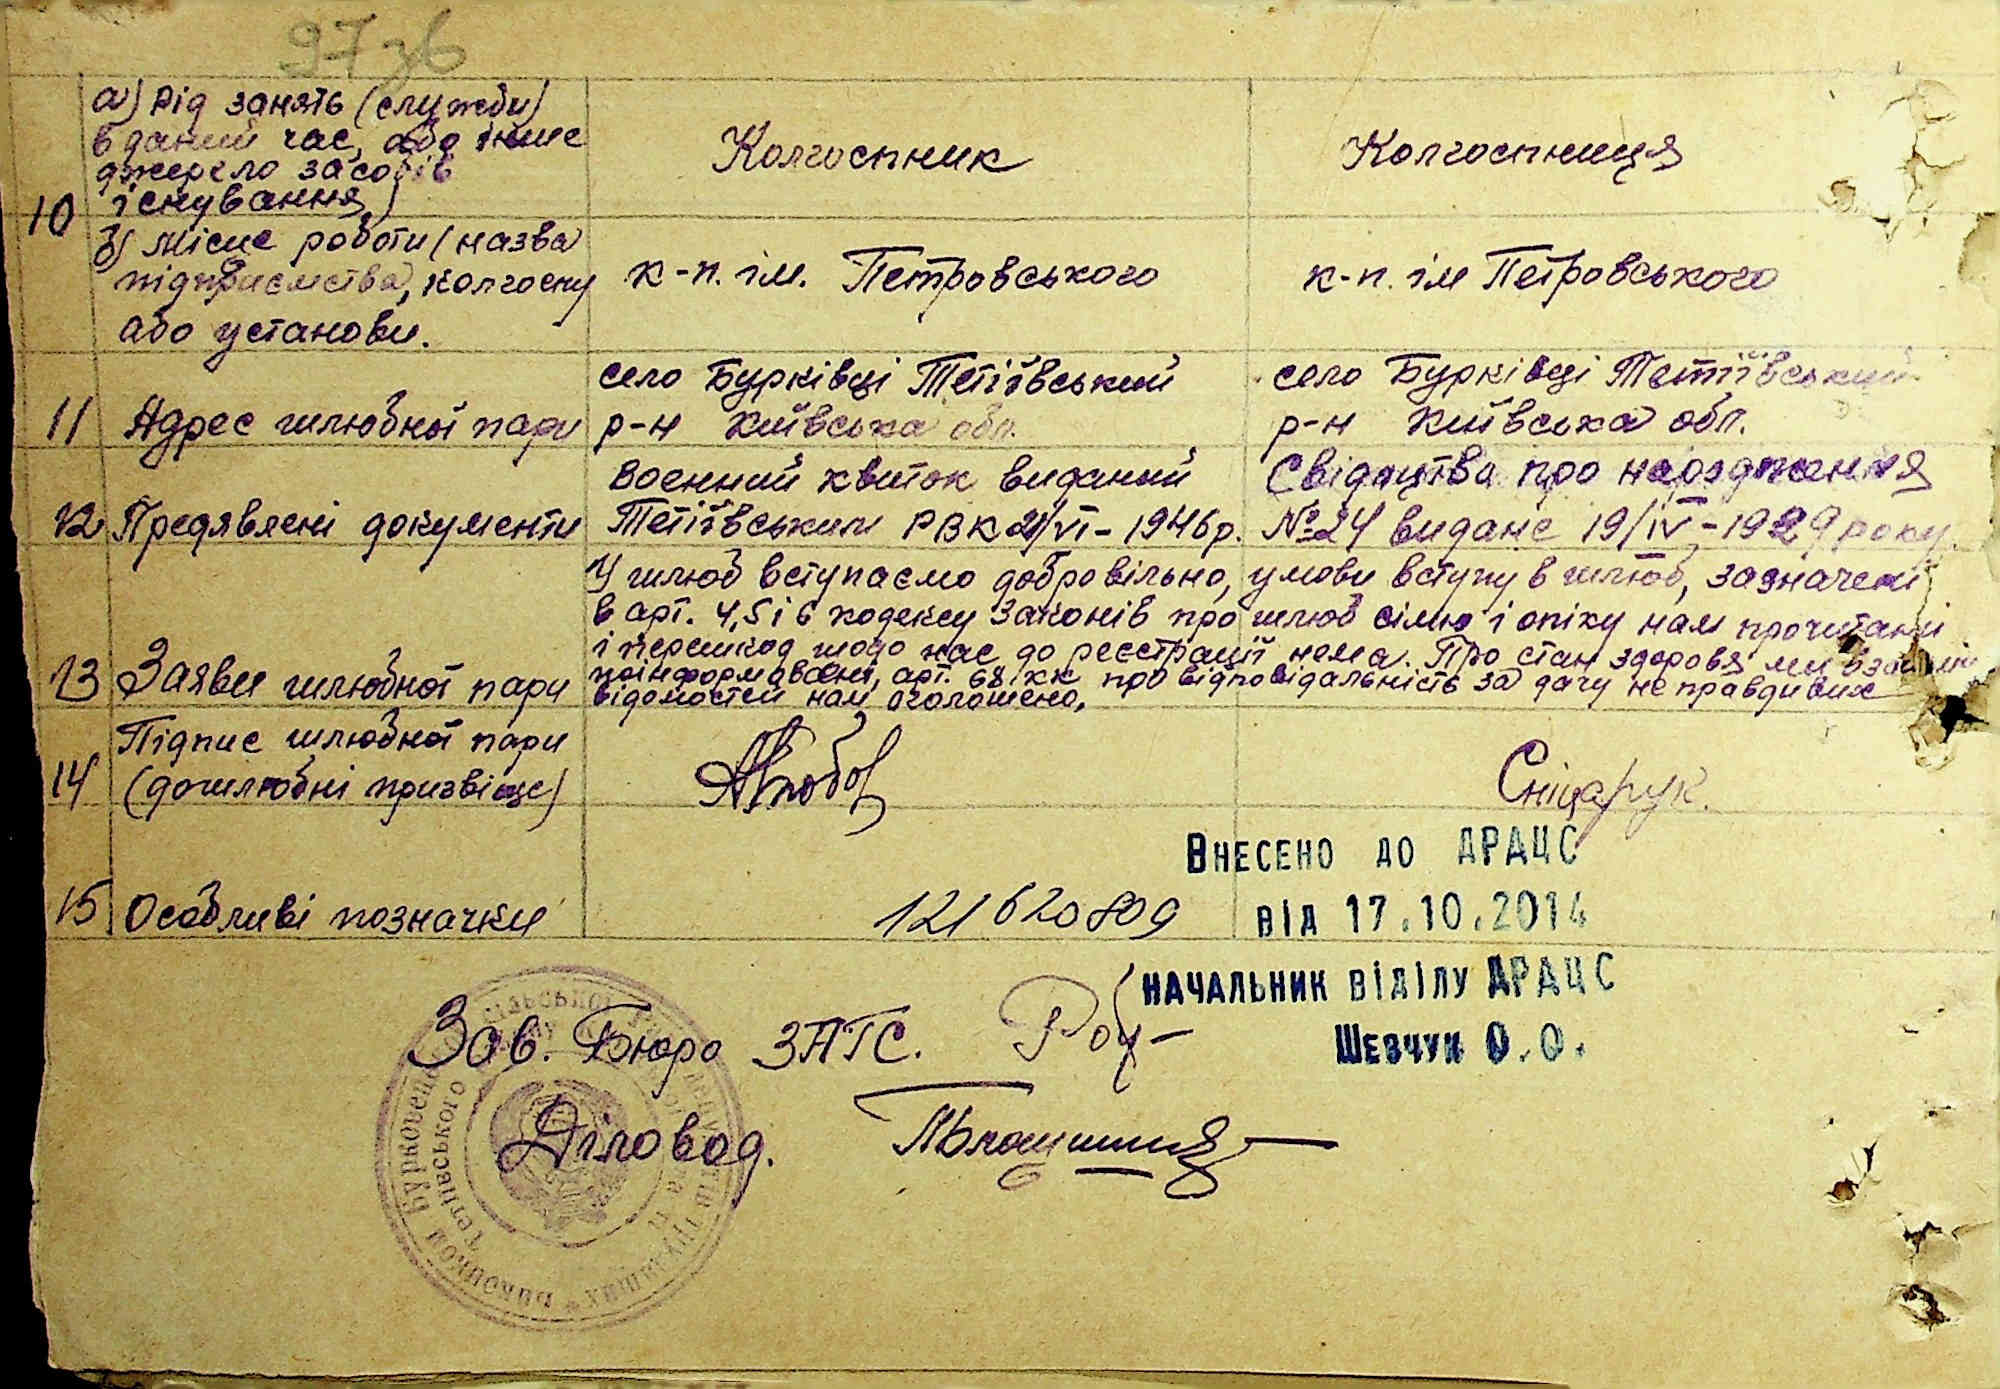 97 зв
а) Рід занять (служби)
в даний час, або інше
джерело засобів
існування)
Колгоспник
Колгоспниця
10
б) Місце роботи (назва
підприємства, колгоспу
або установи.
к-п. ім. Петровського
к-п. ім Петровського
11 Адрес шлюбної пари
село Бурківці Тетіївський
р-н Київська обл.
село Бурківці Тетіївський
р-н Київська обл.
12 Предявлені документи
Воєнний квиток виданий
Тетіївським РВК 21/VI - 1946 р.
Свідоцтва про народження
№ 24 видане 19/IV - 1929 року
13 Заяви шлюбної пари
У шлюб вступаємо добровільно, умови вступу в шлюб, зазначені
в арт. 4,5 і 6 кодексу законів про шлюб сімю і опіку нам прочитані
і перешкод щодо нас до реєстрації нема. Про стан здоровя ми взаємно
поінформовані, арт. 68 КК про відповідальність за дачу неправдивих
відомостей нам оголошено.
Підпис шлюбної пари
14 (дошлюбні призвіще)
Сніцарук.
15 Особливі позначки
121620809
Внесено до ДРАЦС
від 17.10.2014
начальник віділу ДРАЦС
Шевчук О.О.
Зав. Бюро ЗАГС.
Діловод.
Виконком Бурковецької сільської ради депутатів трудящих
Тетіївського